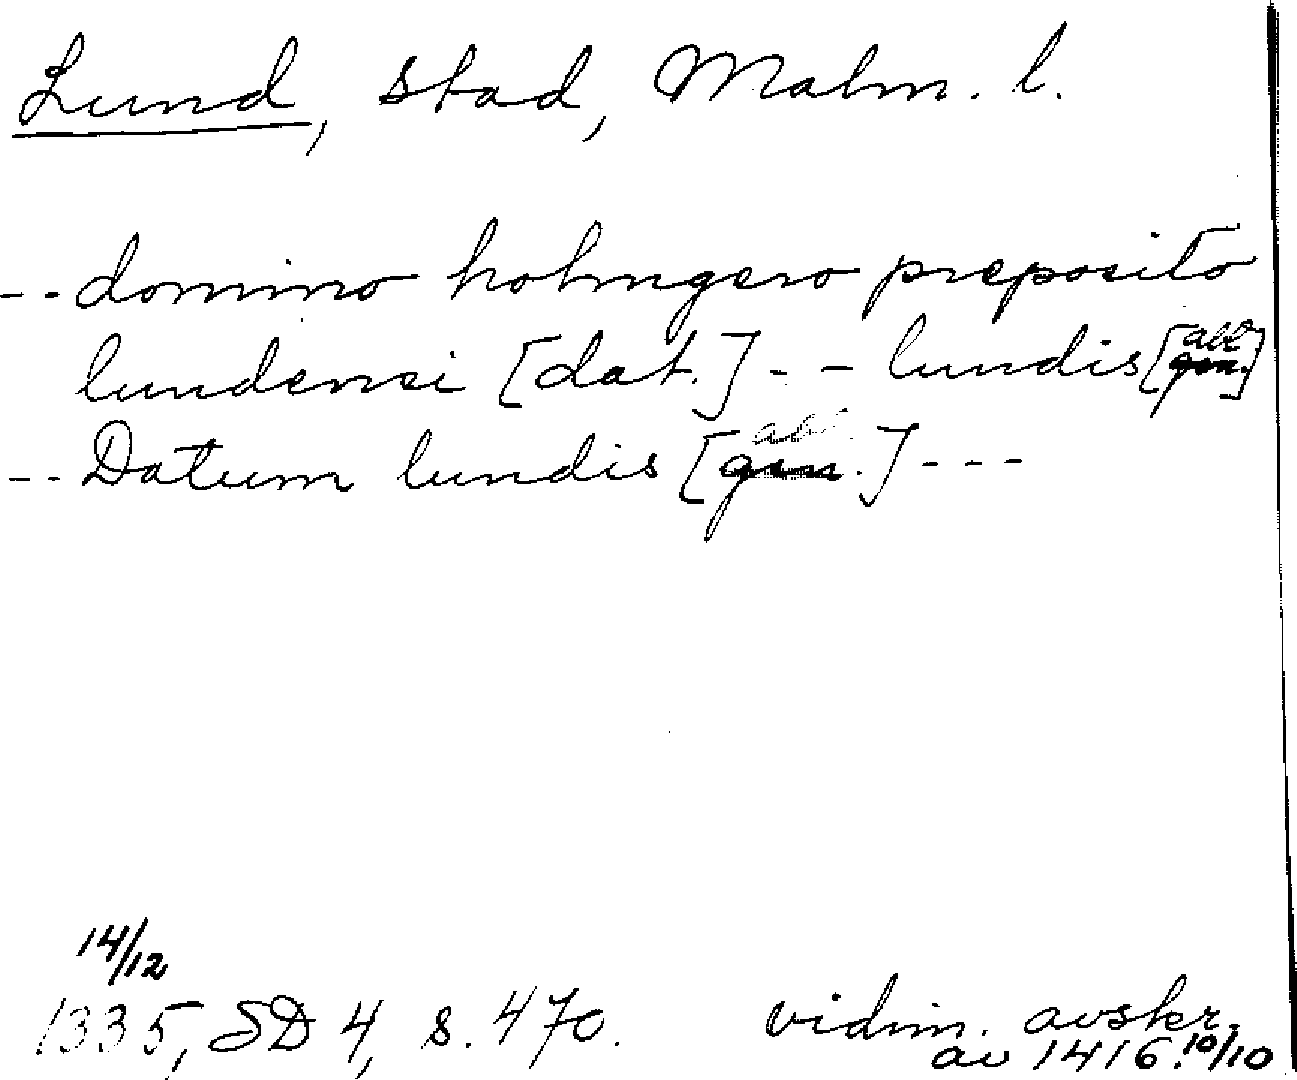 Lund, stad, Malm. l.
-- domino holmgero preposito
lundensi [dat.] -- lundis [abl.]
-- Datum lundis [abl.] ---
14/12
1335, SD 4, s. 470.
vidim. avskr.
av 1416 10/10